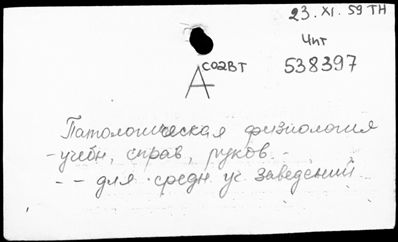 23. XI. 59 ТН
Чит
А СО2ВТ 538397
Патологическая физиология
- учебн, справ, руков. -
- - для средн уч заведений